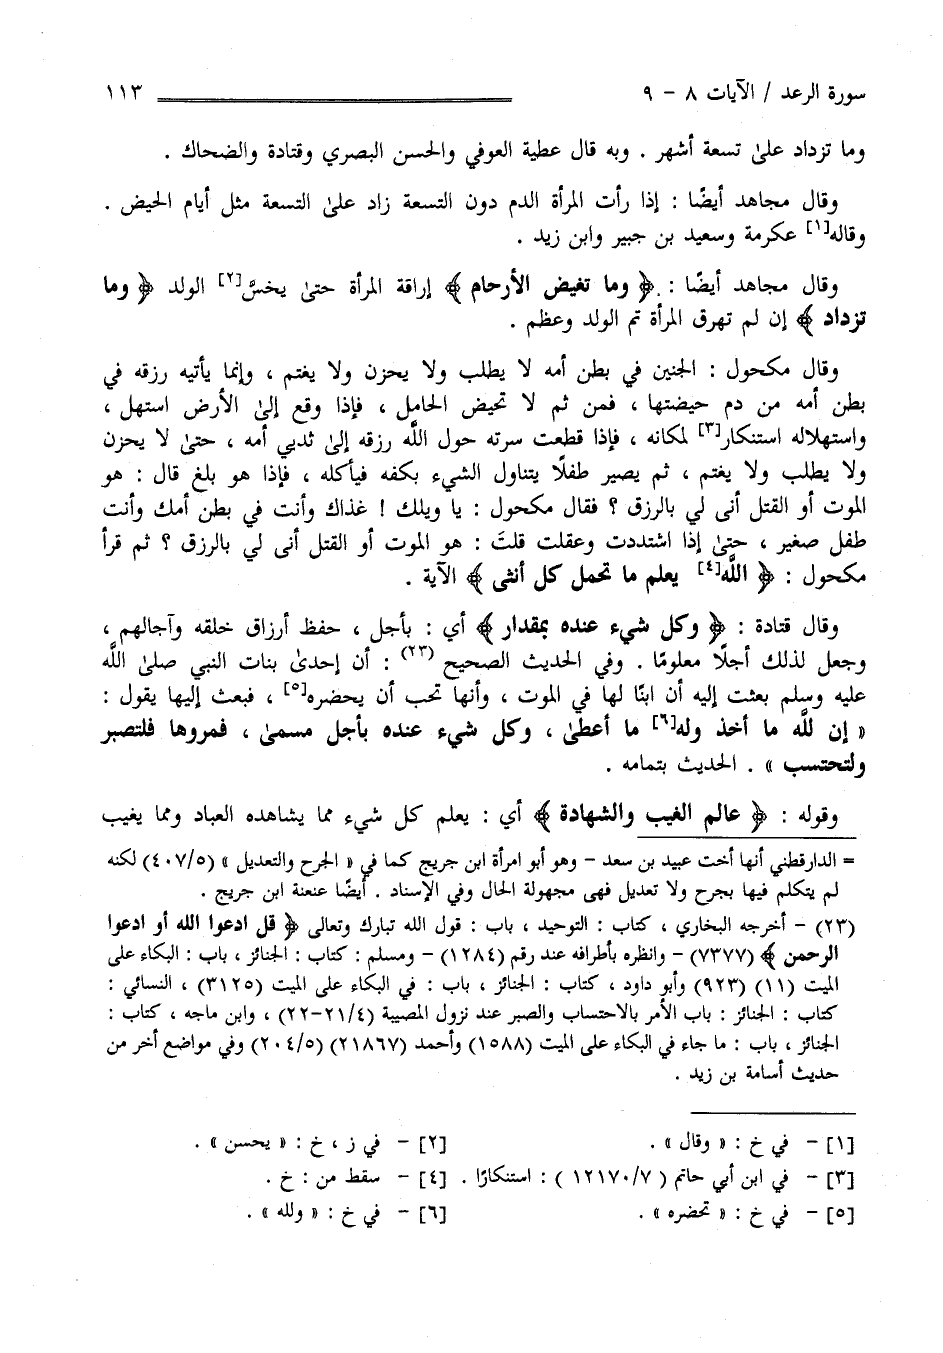 سورة الرعد / الآيات ٨ – ٩ ١١٣
وما تزداد علىٰ تسعة أشهر . وبه قال عطية العوفي والحسن البصري وقتادة والضحاك .
وقال مجاهد أيضًا : إذا رأت المرأة الدم دون التسعة زاد علىٰ التسعة مثل أيام الحيض .
وقاله[١] عكرمة وسعيد بن جبير وابن زيد .
وقال مجاهد أيضًا : ﴿ وما تغيض الأرحام ﴾ إراقة المرأة حتىٰ يخسَّ[٢] الولد ﴿ وما
تزداد ﴾ إن لم تهرق المرأة تم الولد وعظم .
وقال مكحول : الجنين في بطن أمه لا يطلب ولا يحزن ولا يغتم ، وإنما يأتيه رزقه في
بطن أمه من دم حيضتها ، فمن ثم لا تحيض الحامل ، فإذا وقع إلىٰ الأرض استهل ،
واستهلاله استنكار[٣] لمكانه ، فإذا قطعت سرته حول اللَّه رزقه إلىٰ ثديي أمه ، حتىٰ لا يحزن
ولا يطلب ولا يغتم ، ثم يصير طفلًا يتناول الشيء بكفه فيأكله ، فإذا هو بلغ قال : هو
الموت أو القتل أنى لي بالرزق ؟ فقال مكحول : يا ويلك ! غذاك وأنت في بطن أمك وأنت
طفل صغير ، حتىٰ إذا اشتددت وعقلت قلتَ : هو الموت أو القتل أنى لي بالرزق ؟ ثم قرأ
مكحول : ﴿ اللَّه[٤] يعلم ما تحمل كل أنثى ﴾ الآية .
وقال قتادة : ﴿ وكل شيء عنده بمقدار ﴾ أي : بأجل ، حفظ أرزاق خلقه وآجالهم ،
وجعل لذلك أجلًا معلومًا . وفي الحديث الصحيح (٢٣) : أن إحدىٰ بنات النبي صلىٰ اللَّه
عليه وسلم بعثت إليه أن ابنًا لها في الموت ، وأنها تحب أن يحضره[٥] ، فبعث إليها يقول :
« إن للَّه ما أخذ وله[٦] ما أعطىٰ ، وكل شيء عنده بأجل مسمىٰ ، فمروها فلتصبر
ولتحتسب » . الحديث بتمامه .
وقوله : ﴿ عالم الغيب والشهادة ﴾ أي : يعلم كل شيء مما يشاهده العباد ومما يغيب
= الدارقطني أنها أخت عبيد بن سعد – وهو أبو امرأة ابن جريج كما في « الجرح والتعديل » (٤٠٧/٥) لكنه
لم يتكلم فيها بجرح ولا تعديل فهى مجهولة الحال وفي الإسناد . أيضًا عنعنة ابن جريج .
(٢٣) – أخرجه البخاري ، كتاب : التوحيد ، باب : قول الله تبارك وتعالى ﴿ قل ادعوا الله أو ادعوا
الرحمن ﴾ (٧٣٧٧) – وانظره بأطرافه عند رقم (١٢٨٤) – ومسلم : كتاب : الجنائز ، باب : البكاء على
الميت (١١) (٩٢٣) وأبو داود ، كتاب : الجنائز ، باب : في البكاء على الميت (٣١٢٥) ، النسائي :
كتاب : الجنائز : باب الأمر بالاحتساب والصبر عند نزول المصيبة (٢١/٤-٢٢) ، وابن ماجه ، كتاب :
الجنائز ، باب : ما جاء في البكاء على الميت (١٥٨٨) وأحمد (٢١٨٦٧) (٢٠٤/٥) وفي مواضع أخر من
حديث أسامة بن زيد .
[١] – في خ : « وقال » . [٢] – في ز ، خ : « يحسن » .
[٣] – في ابن أبي حاتم ( ١٢١٧٠/٧ ) : استنكارًا . [٤] – سقط من : خ .
[٥] – في خ : « تحضره » . [٦] – في خ : « ولله » .